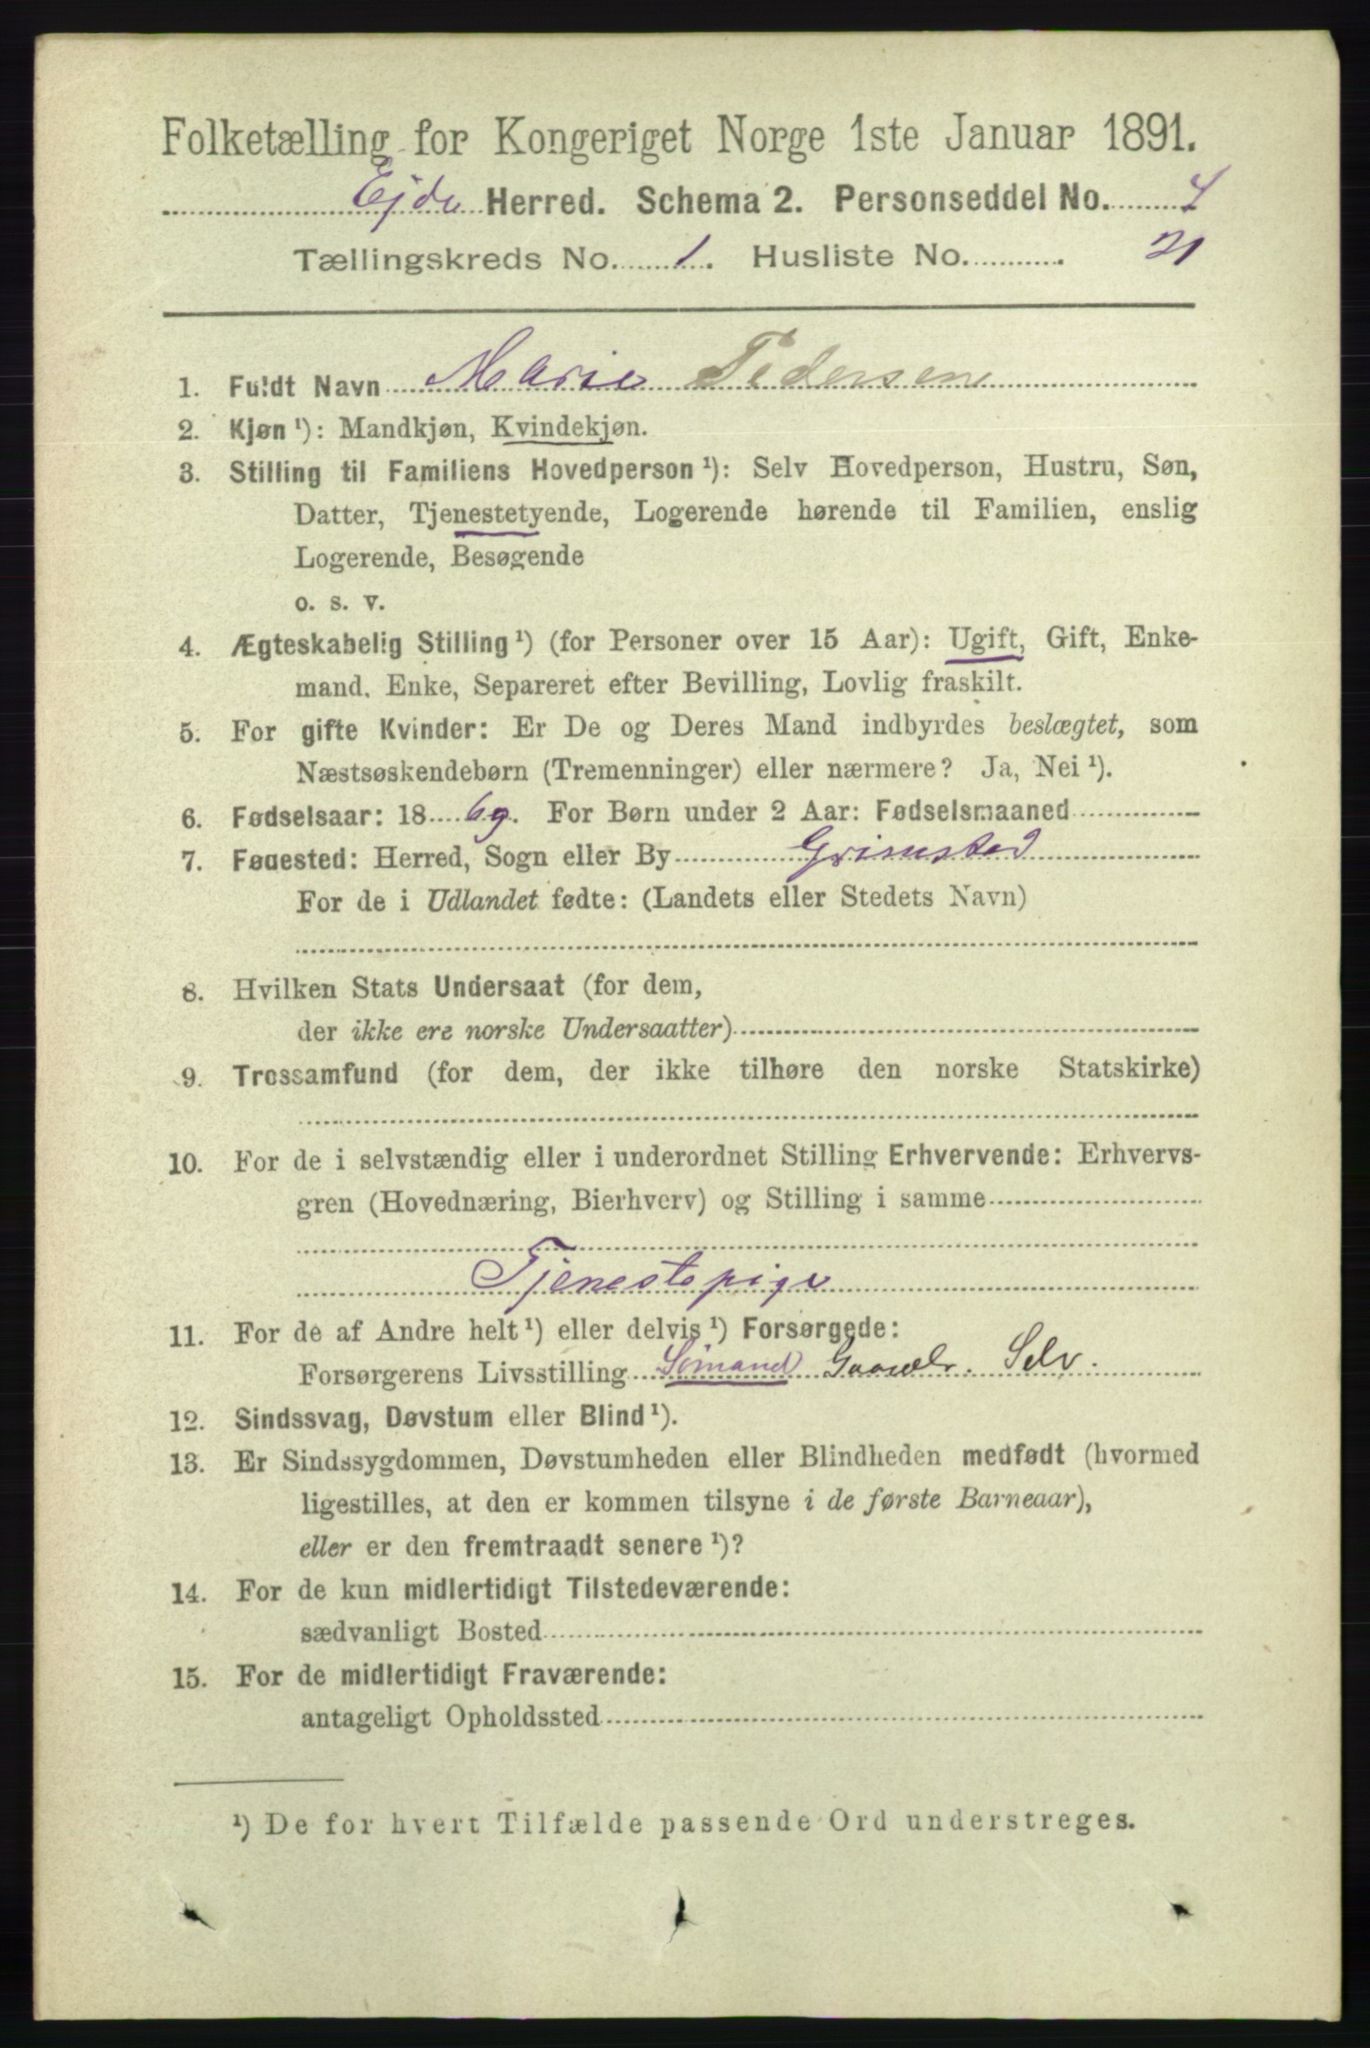 Folketælling for Kongeriget Norge 1ste Januar 1891.
Ejde Herred. Schema 2. Personseddel No. 4
Tællingskreds No. 1. Husliste No. 21
1. Fuldt Navn Marie Pedersen
2. Kjøn ¹): Mandkjøn, Kvindekjøn.
3. Stilling til Familiens Hovedperson ¹): Selv Hovedperson, Hustru, Søn,
Datter, Tjenestetyende, Logerende hørende til Familien, enslig
Logerende, Besøgende
o. s. v.
4. Ægteskabelig Stilling ¹) (for Personer over 15 Aar): Ugift, Gift, Enke-
mand, Enke, Separeret efter Bevilling, Lovlig fraskilt.
5. For gifte Kvinder: Er De og Deres Mand indbyrdes beslægtet, som
Næstsøskendebørn (Tremenninger) eller nærmere? Ja, Nei ¹).
6. Fødselsaar: 18 69. For Børn under 2 Aar: Fødselsmaaned
7. Fødested: Herred, Sogn eller By Grimstad
For de i Udlandet fødte: (Landets eller Stedets Navn)
8. Hvilken Stats Undersaat (for dem,
der ikke ere norske Undersaatter)
9. Trossamfund (for dem, der ikke tilhøre den norske Statskirke)
10. For de i selvstændig eller i underordnet Stilling Erhvervende: Erhvervs-
gren (Hovednæring, Bierhverv) og Stilling i samme
Tjenestepige
11. For de af Andre helt ¹) eller delvis ¹) Forsørgede:
Forsørgerens Livsstilling Sømand Selv.
12. Sindssvag, Døvstum eller Blind ¹).
13. Er Sindssygdommen, Døvstumheden eller Blindheden medfødt (hvormed
ligestilles, at den er kommen tilsyne i de første Barneaar),
eller er den fremtraadt senere ¹)?
14. For de kun midlertidigt Tilstedeværende:
sædvanligt Bosted
15. For de midlertidigt Fraværende:
antageligt Opholdssted
¹) De for hvert Tilfælde passende Ord understreges.